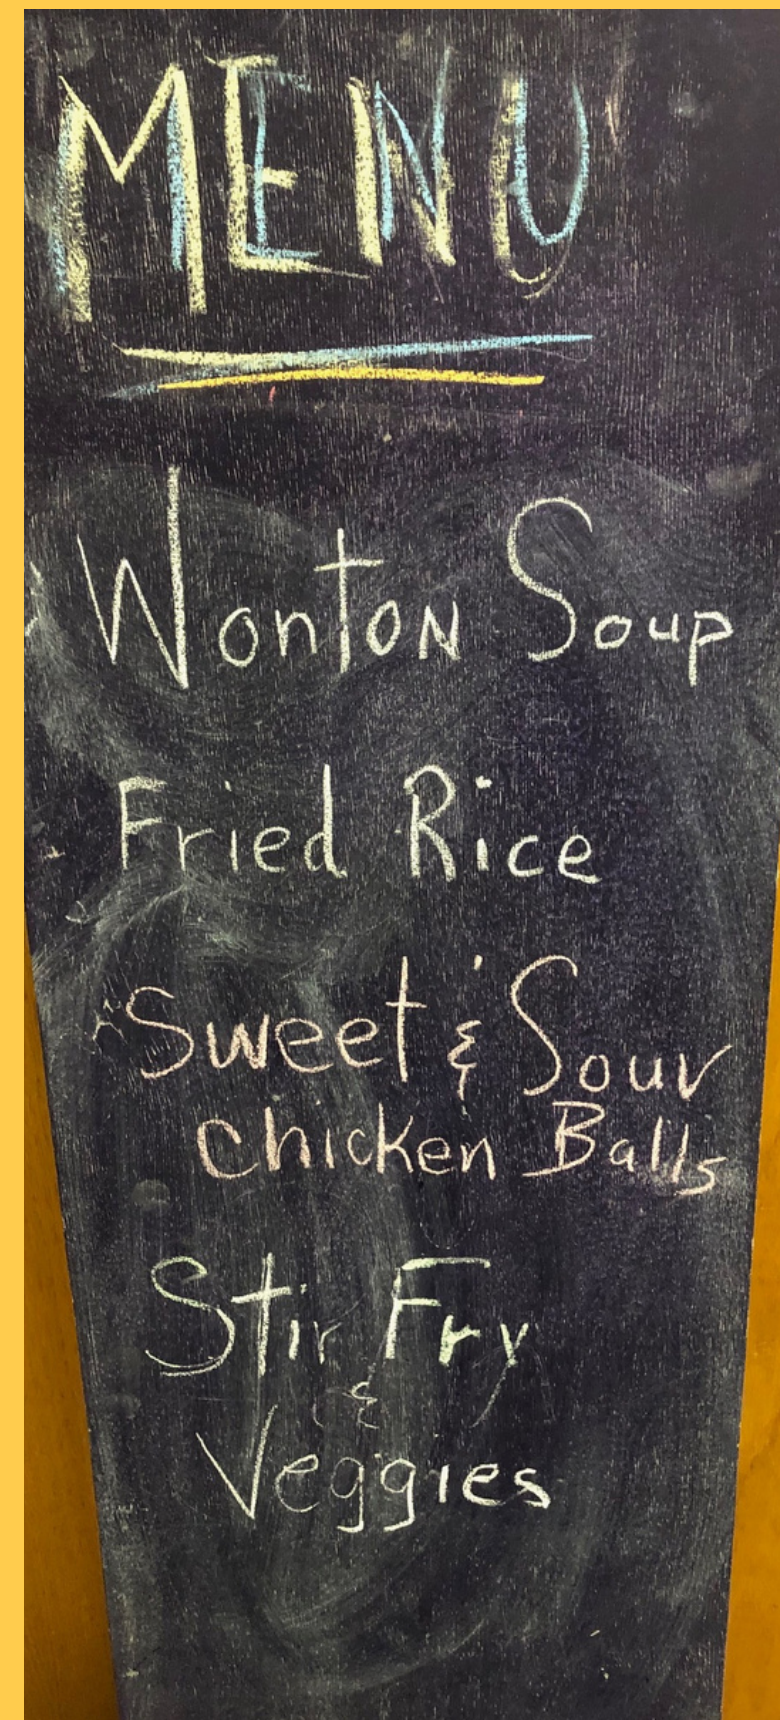 MENU
Wonton Soup
Fried Rice
Sweet & Sour
Chicken Balls
Stir Fry
&
Veggies